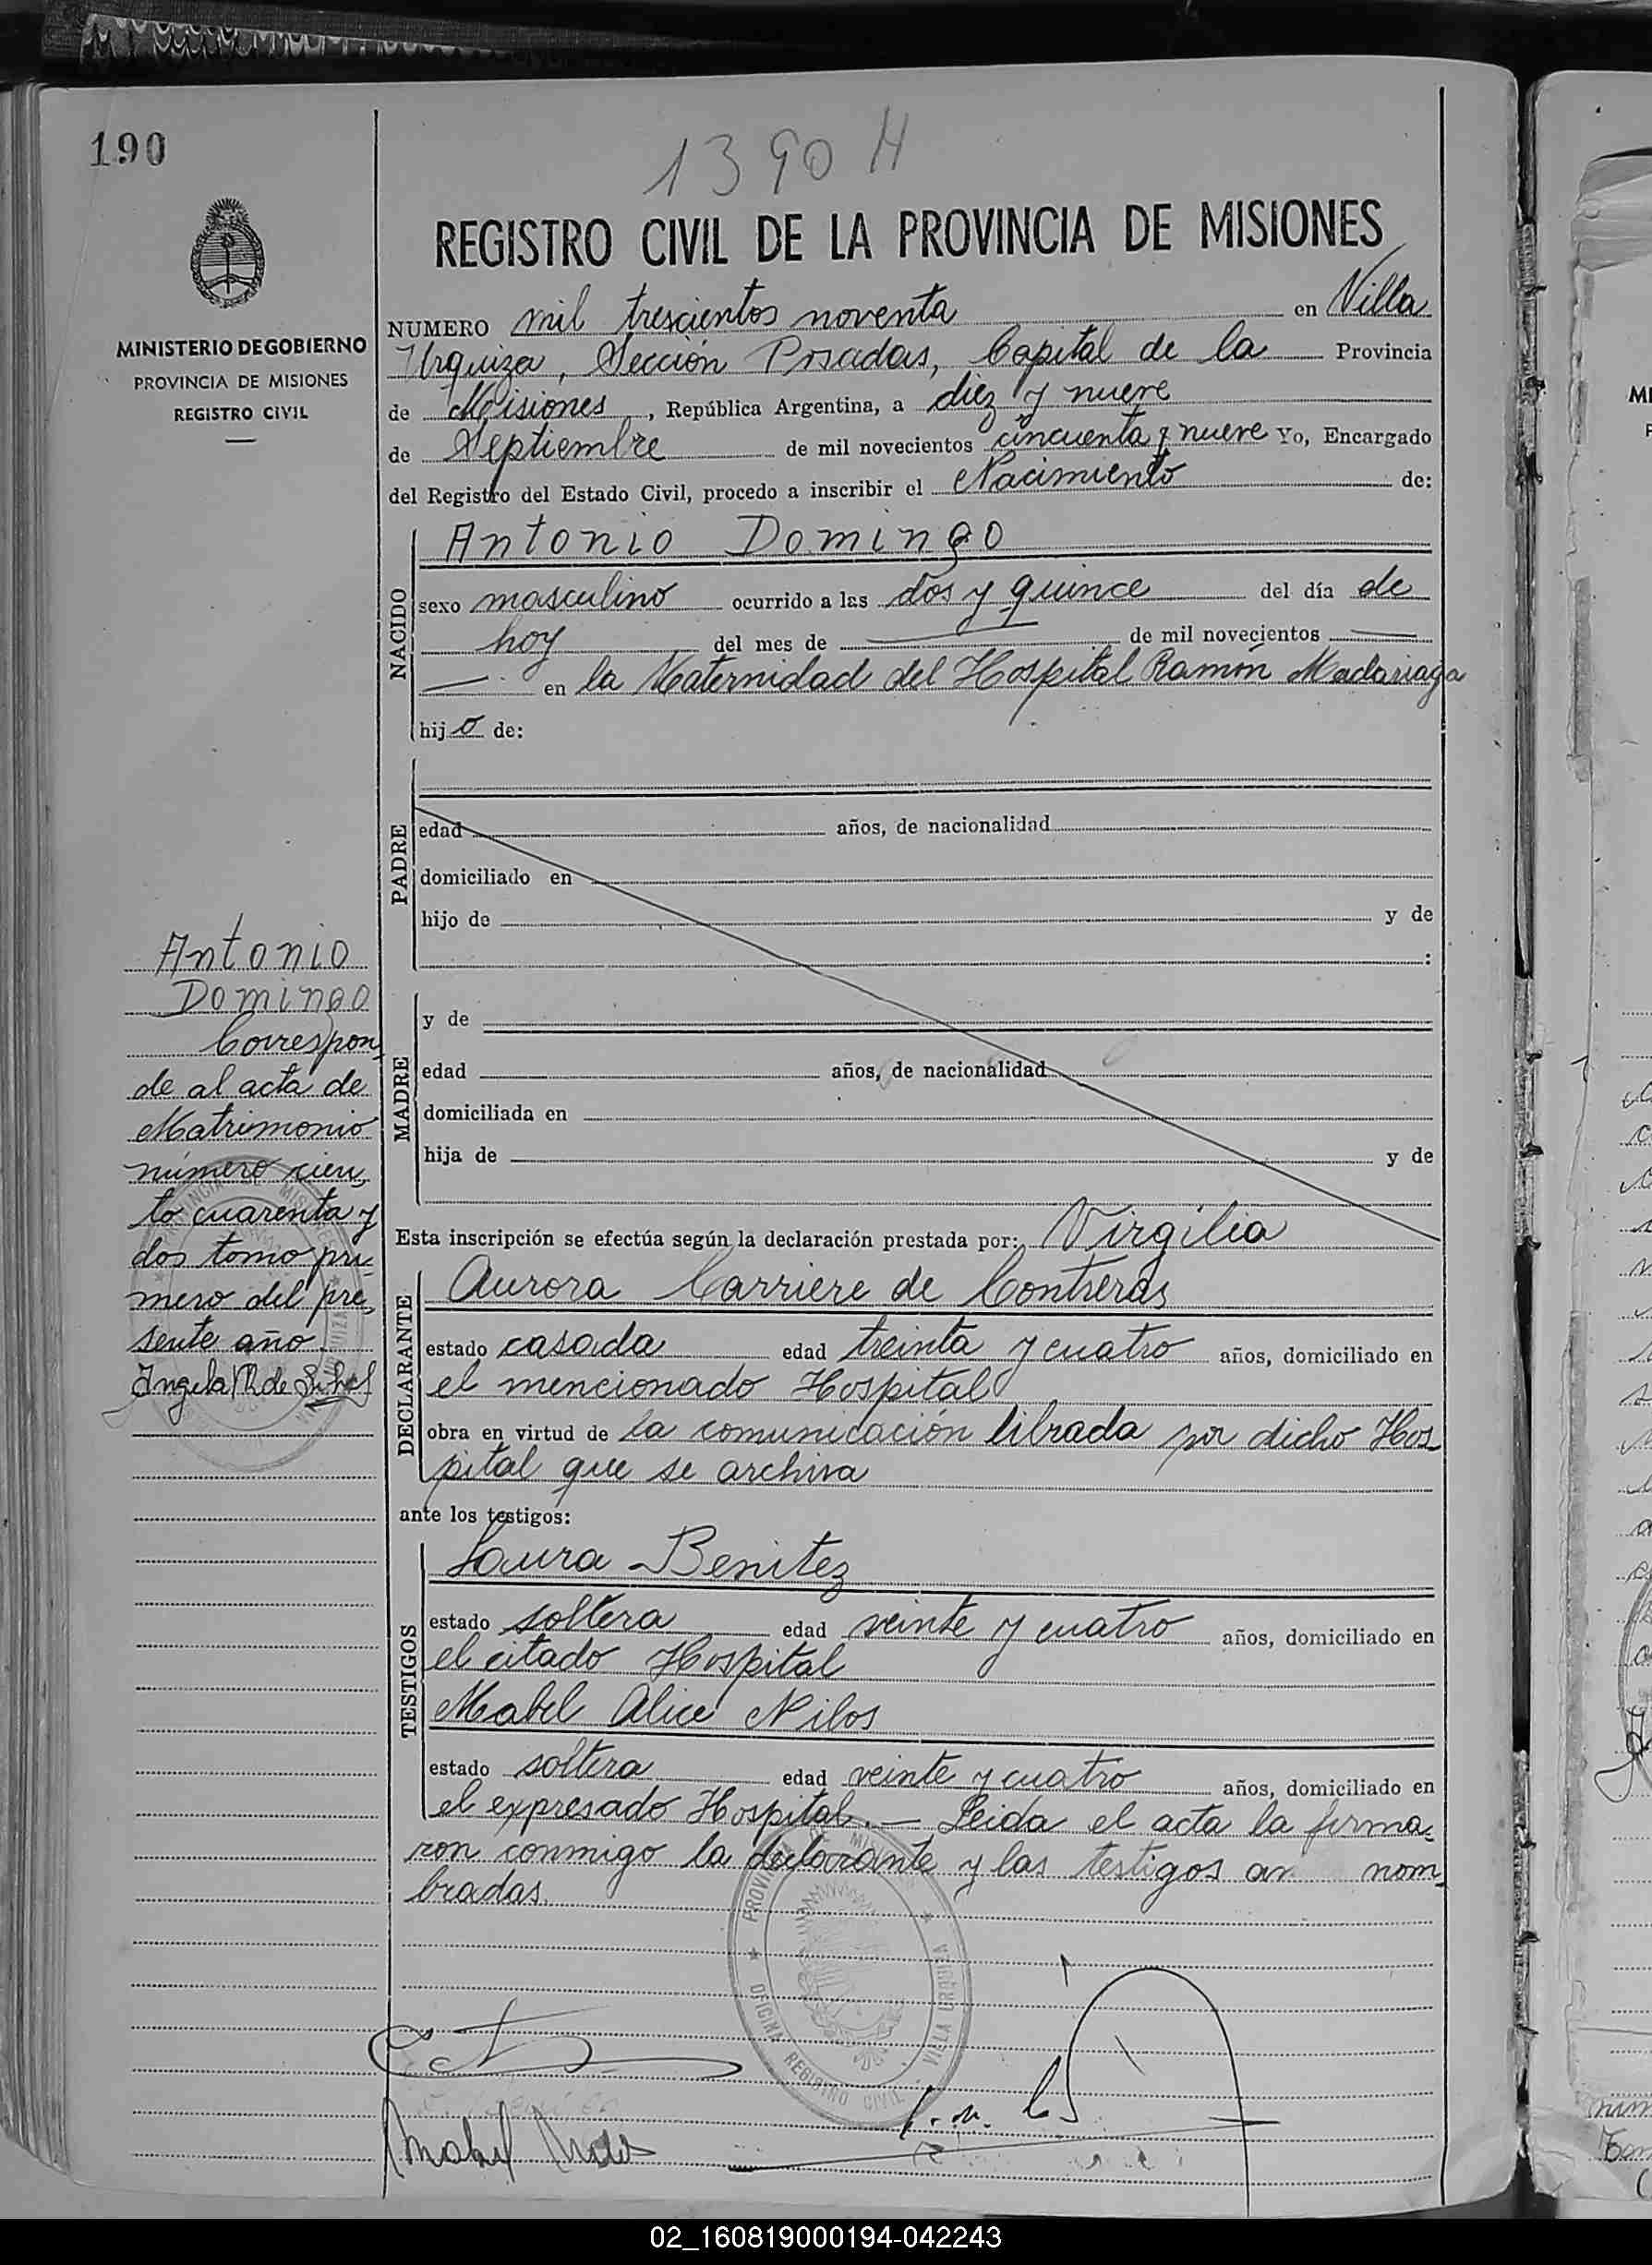 190
1390 H
REGISTRO CIVIL DE LA PROVINCIA DE MISIONES
MINISTERIO DE GOBIERNO
PROVINCIA DE MISIONES
REGISTRO CIVIL
NUMERO mil trescientos noventa en Villa
Urquiza, Sección Posadas, Capital de la Provincia
de Misiones, República Argentina, a diez y nueve
de Septiembre de mil novecientos cincuenta y nueve Yo, Encargado
del Registro del Estado Civil, procedo a inscribir el Nacimiento de:
NACIDO
Antonio Domingo
sexo masculino ocurrido a las dos y quince del día de
hoy del mes de — de mil novecientos —
— en la Maternidad del Hospital Ramón Madariaga
hijo de:
PADRE
edad años, de nacionalidad
domiciliado en
hijo de y de
:
MADRE
y de
edad años, de nacionalidad
domiciliada en
hija de y de
Esta inscripción se efectúa según la declaración prestada por: Virgilia
DECLARANTE
Aurora Carriere de Contreras
estado casada edad treinta y cuatro años, domiciliado en
el mencionado Hospital
obra en virtud de la comunicación librada por dicho Hos
pital que se archiva
ante los testigos:
TESTIGOS
Laura Benitez
estado soltera edad veinte y cuatro años, domiciliado en
el citado Hospital
Mabel Alice Nilos
estado soltera edad veinte y cuatro años, domiciliado en
el expresado Hospital.— Leida el acta la firma-
ron conmigo la declarante y las testigos nom-
bradas.
Antonio
Domingo
Correspon-
de al acta de
Matrimonio
número cien-
to cuarenta y
dos tomo pri-
mero del pre-
sente año.
Angela R. de
OFICINA REGISTRO CIVIL VILLA URQUIZA
02_160819000194-042243